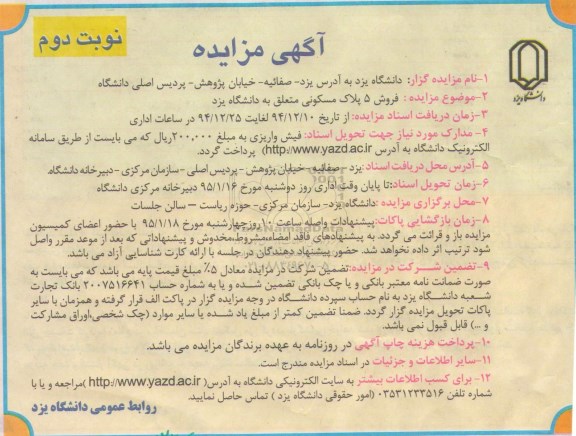 نوبت دوم
آگهی مزایده
دانشگاه یزد
۱-نام مزایده گزار: دانشگاه یزد به آدرس یزد- صفائیه- خیابان پژوهش- پردیس اصلی دانشگاه
۲-موضوع مزایده : فروش ۵ پلاک مسکونی متعلق به دانشگاه یزد
۳-زمان دریافت اسناد مزایده: از تاریخ ۹۴/۱۲/۱۰ لغایت ۹۴/۱۲/۲۵ در ساعات اداری
۴- مدارک مورد نیاز جهت تحویل اسناد: فیش واریزی به مبلغ ۲۰۰,۰۰۰ریال که می بایست از طریق سامانه
الکترونیک دانشگاه به آدرس http://www.yazd.ac.ir) پرداخت گردد.
۵-آدرس محل دریافت اسناد:یزد -صفائیه- خیابان پژوهش -پردیس اصلی -سازمان مرکزی -دبیرخانه دانشگاه.
۶-زمان تحویل اسناد:تا پایان وقت اداری روز دوشنبه مورخ ۹۵/۱/۱۶ دبیرخانه مرکزی دانشگاه
۷-محل برگزاری مزایده :دانشگاه یزد- سازمان مرکزی- حوزه ریاست – سالن جلسات
۸-زمان بازگشایی پاکات:پیشنهادات واصله ساعت ۱۰ روزچهارشنبه مورخ ۹۵/۱/۱۸ با حضور اعضای کمیسیون
مزایده باز و قرائت می گردد. به پیشنهادهای فاقد امضاء،مشروط،مخدوش و پیشنهاداتی که بعد از موعد مقرر واصل
شود ترتیب اثر داده نخواهد شد. حضور پیشنهاد دهندگان در جلسه با ارائه کارت شناسایی آزاد می باشد.
۹-تضمین شرکت در مزایده:تضمین شرکت در مزایده معادل ۵٪ مبلغ قیمت پایه می باشد که می بایست به
صورت ضمانت نامه معتبر بانکی و یا چک بانکی تضمین شده و یا به شماره حساب ۲۰۰۷۵۱۶۶۴۱ بانک تجارت
شعبه دانشگاه یزد به نام حساب سپرده دانشگاه در وجه مزایده گزار در پاکت الف قرار گرفته و همزمان با سایر
پاکات تحویل مزایده گزار گردد. ضمنا تضمین کمتر از مبلغ یاد شده یا سایر موارد (چک شخصی،اوراق مشارکت
و ...) قابل قبول نمی باشد.
۱۰-پرداخت هزینه چاپ آگهی در روزنامه به عهده برندگان مزایده می باشد.
۱۱-سایر اطلاعات و جزئیات در اسناد مزایده مندرج است.
۱۲- برای کسب اطلاعات بیشتر به سایت الکترونیکی دانشگاه به آدرس( http://www.yazd.ac.ir )مراجعه و یا با
شماره تلفن ۰۳۵۳۱۲۳۳۵۱۶ (امور حقوقی دانشگاه یزد ) تماس حاصل نمایید.
روابط عمومی دانشگاه یزد